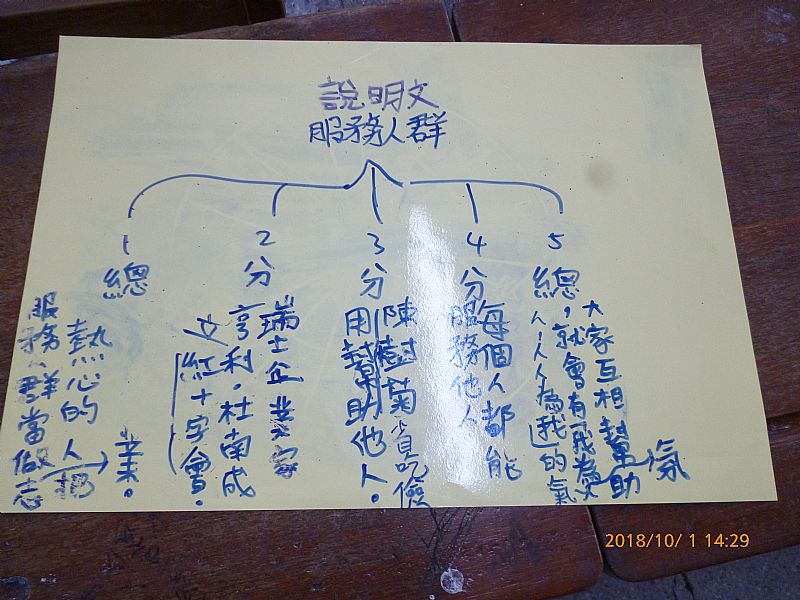 說明文
服務人群
1
總
熱心的人把
服務人群當做志
業。
2
分
瑞士企業家
亨利。杜南成
立紅十字會。
3
分
陳樹菊省吃儉
用幫助他人。
4
分
每個人都能
服務他人
5
總
大家互相幫助
,就會有「我為人
人人人為我」的氣
氛
2018/10/ 1 14:29